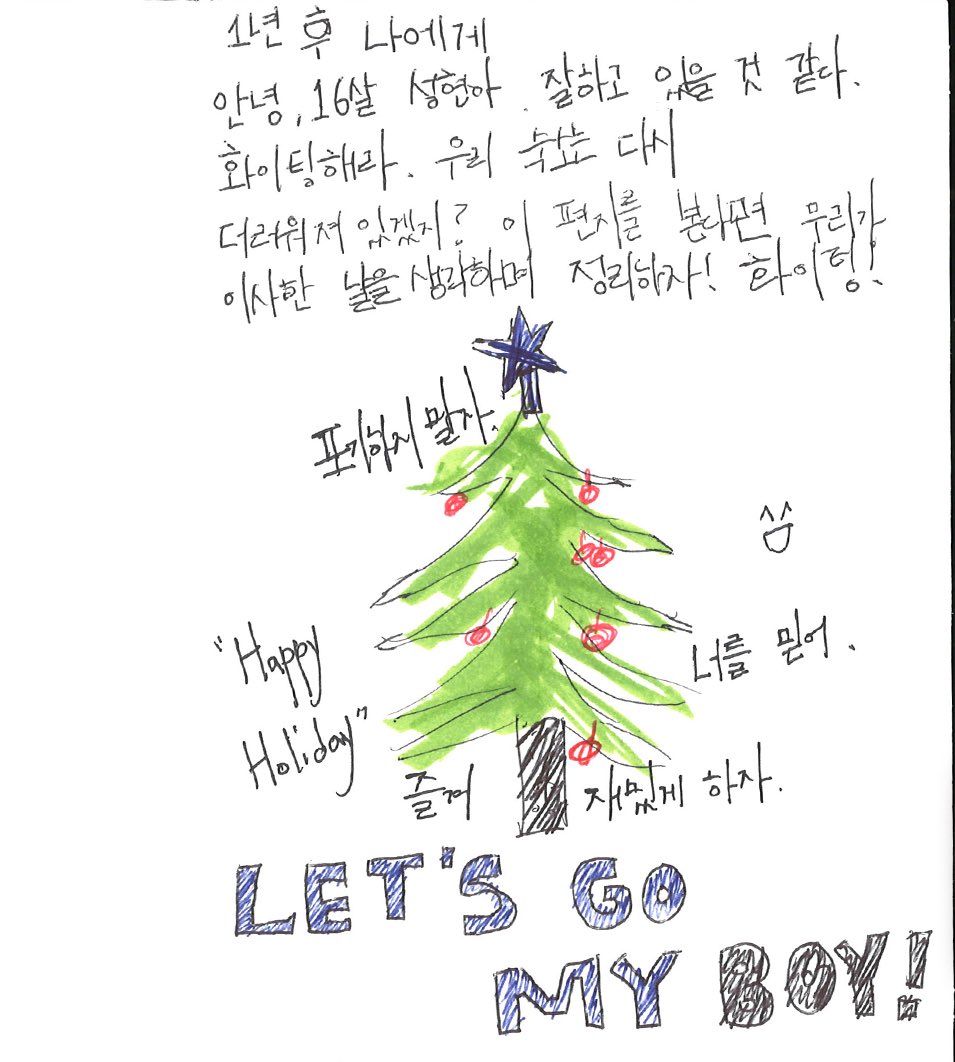 1년 후 나에게
안녕, 16살 성현아. 잘하고 있을 것 같다.
화이팅해라. 우리 숙쇼는 다시
더러워져 있겠지? 이 편지를 본다면 우리가
이사한 날을 생각하며 정리하자! 화이팅!
포기하지 말자.
"Happy
Holiday"
너를 믿어.
즐겨
재밌게 하자.
LET'S GO
MY BOY!